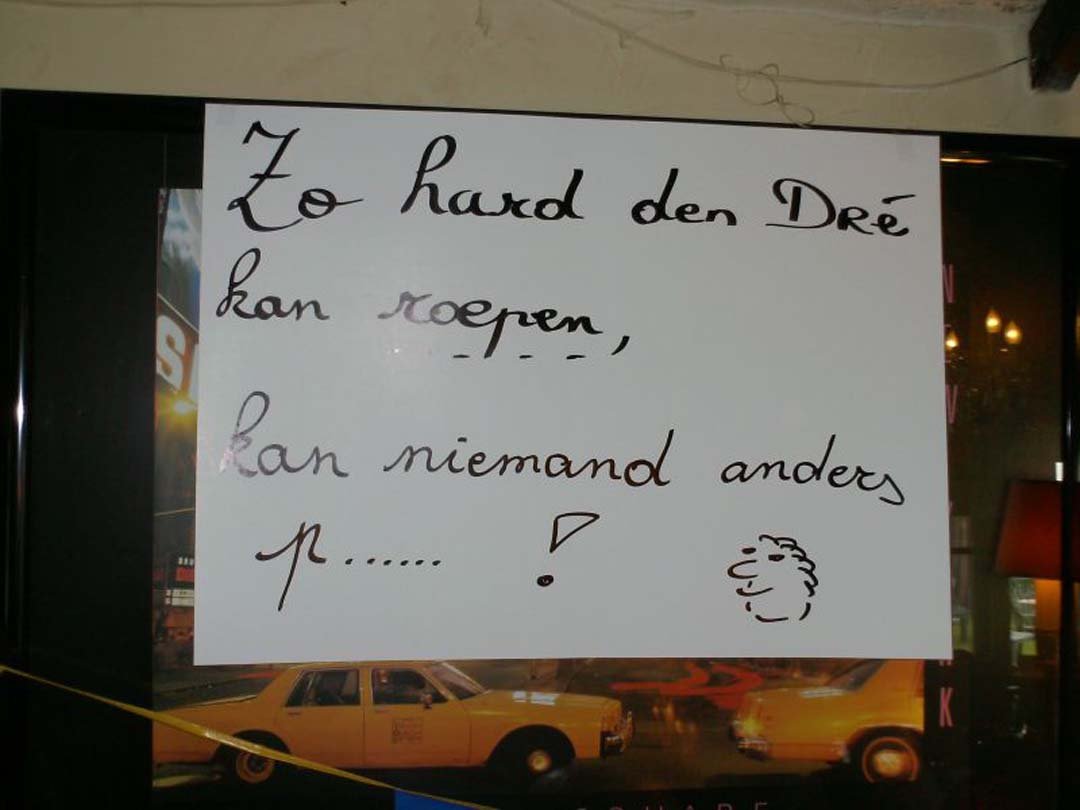 Zo hard den Dré
kan roepen,
kan niemand anders
p...... !
S
N
W
K